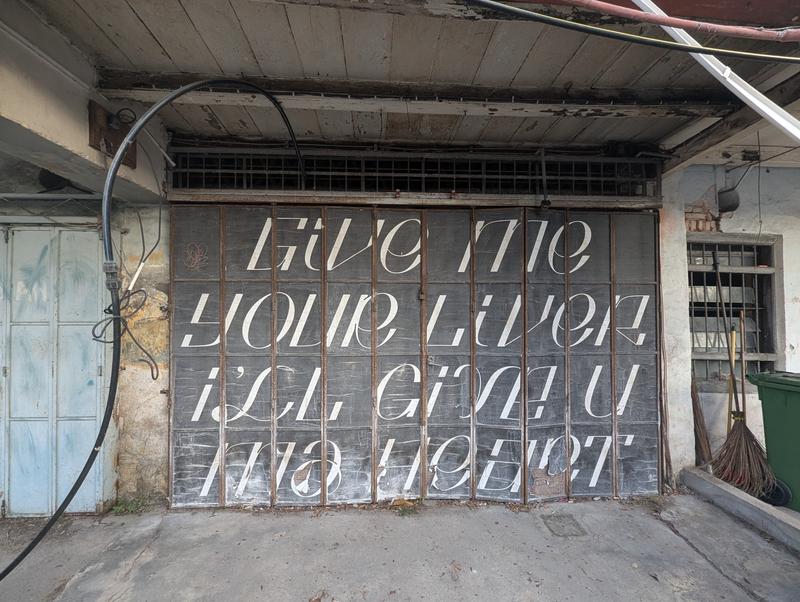 Give me
your Liver
i'll Give U
ma Heart